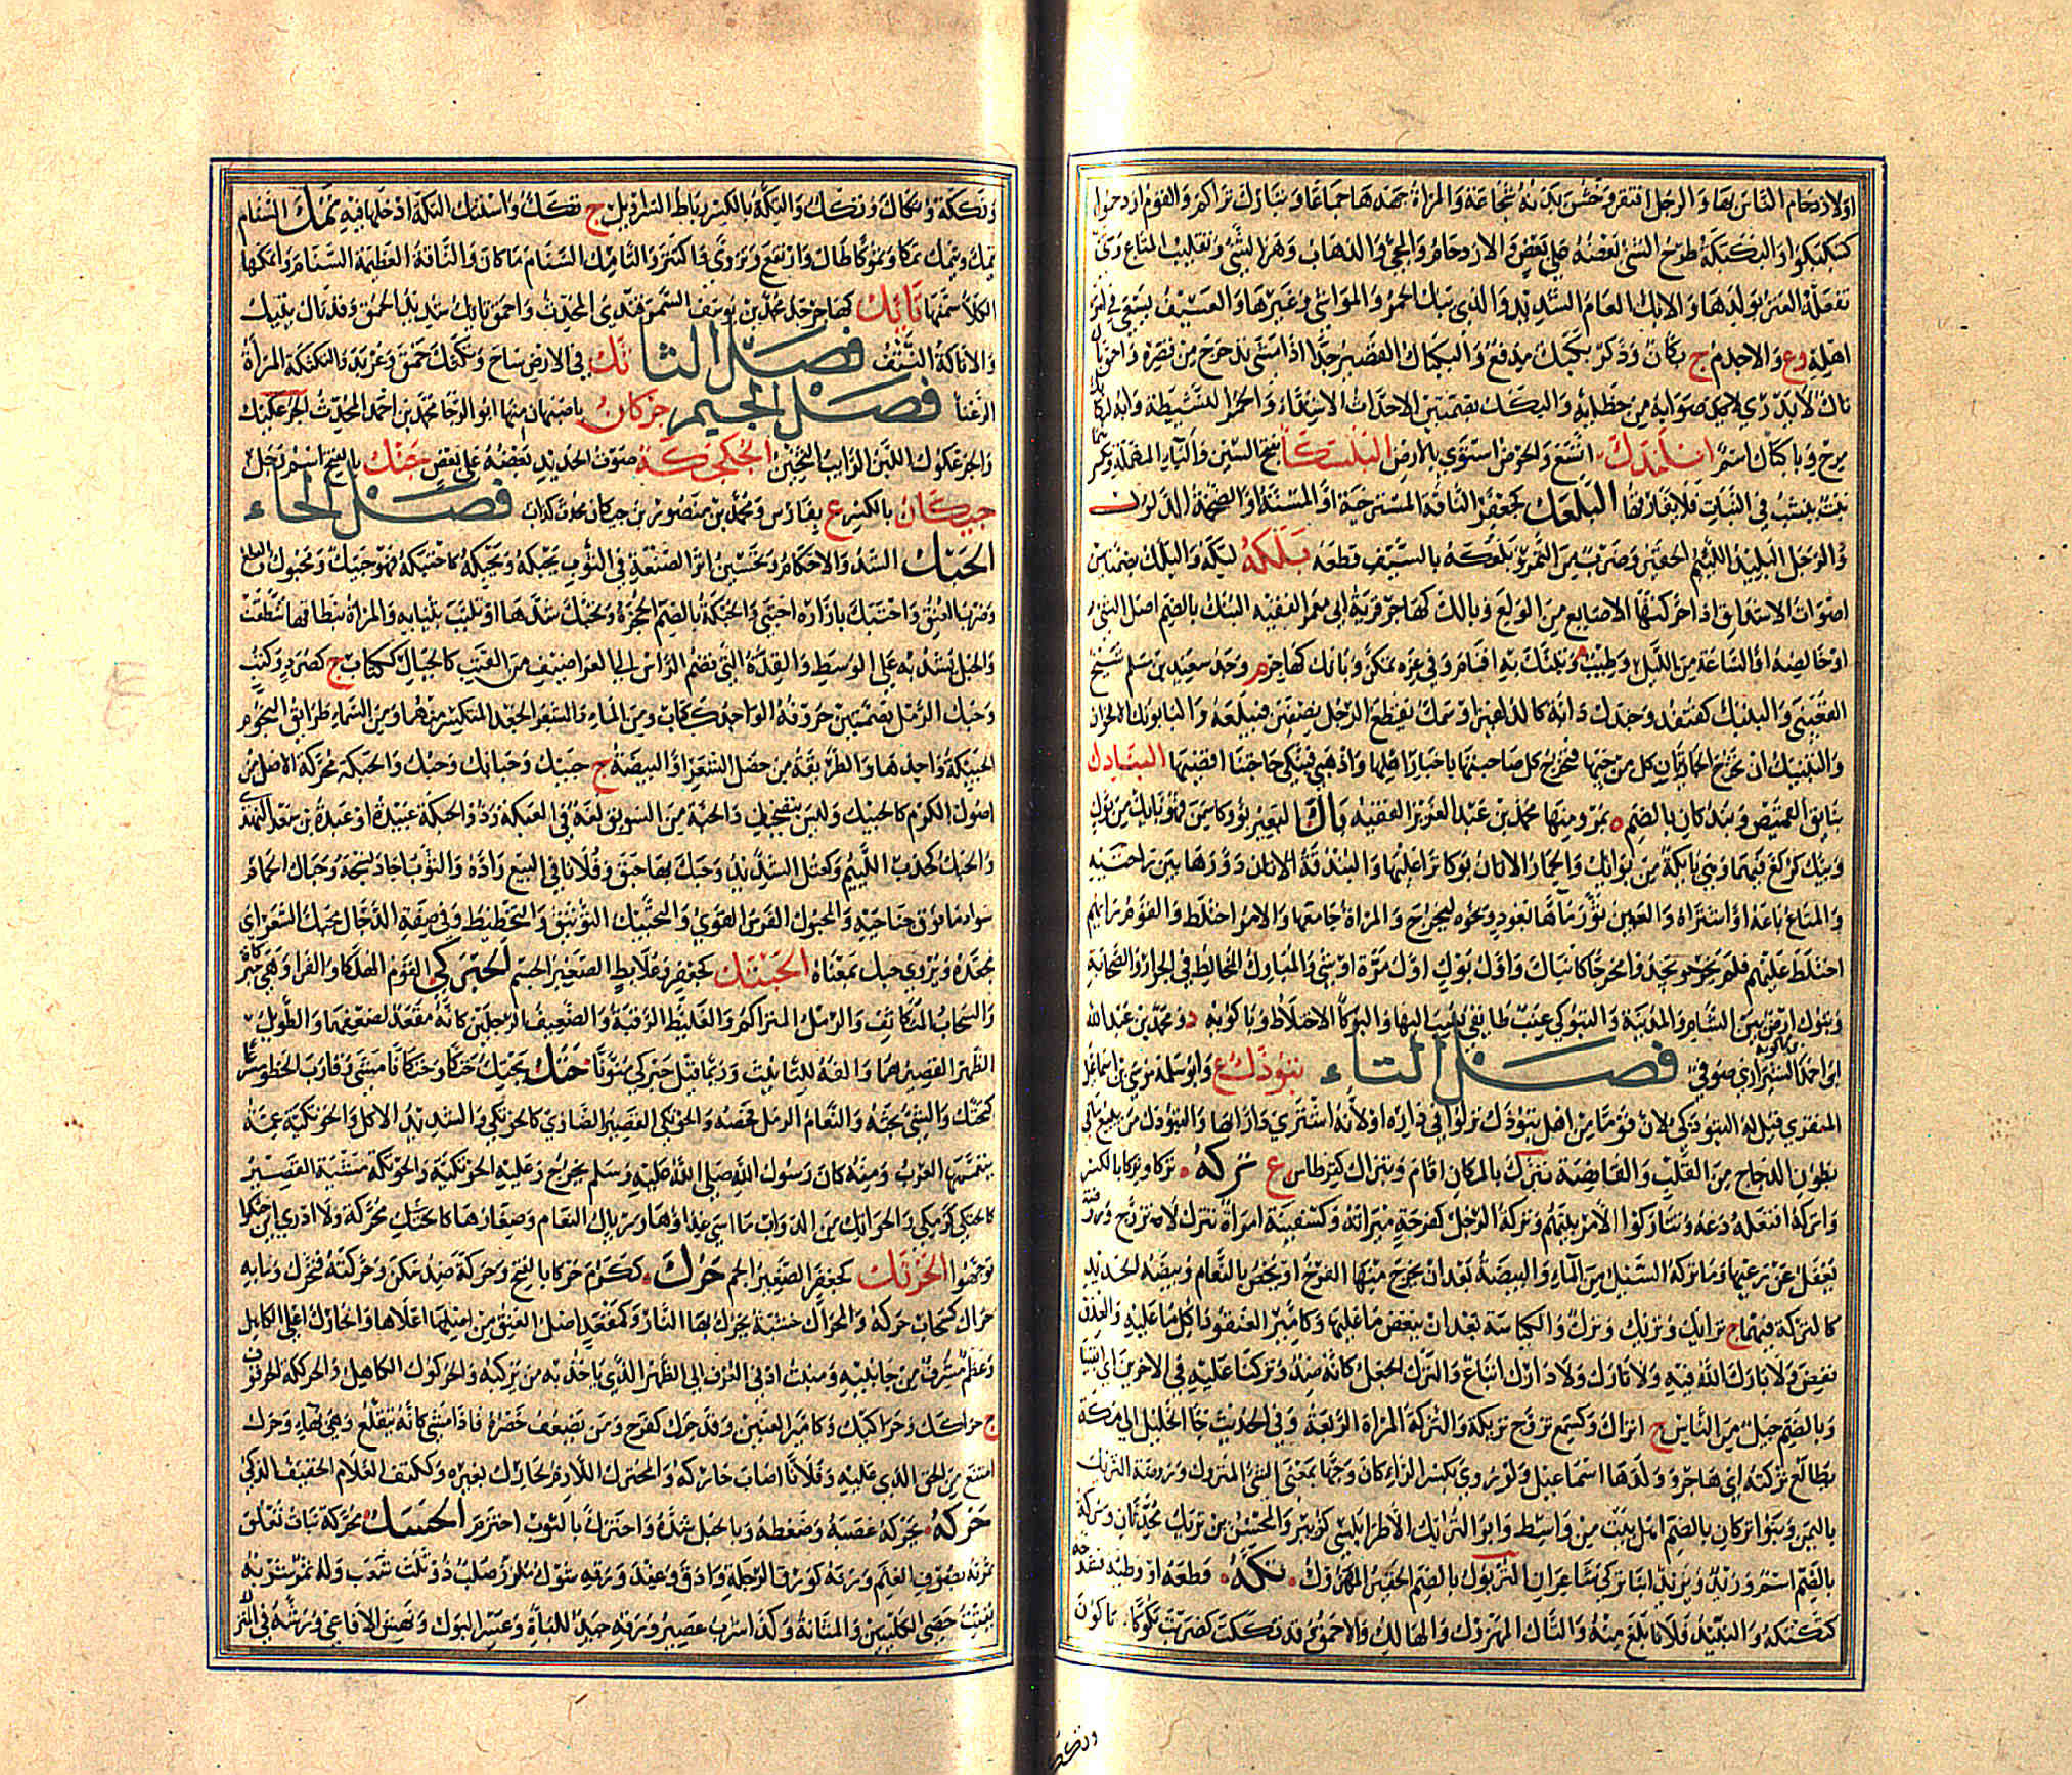 او لازدحام الناس بها والرجل افتقر وخشن بدنه شجاعة والمراة جهدها جماعا وتباك تراكم والقوم ازدحموا
كتبكبكوا والبكبكة طرح الشئ بعضه على بعض والازدحام والمجئ والذهاب وهز الشئ وتقليب المتاع وشئ
تفعله العنز بولدها والابك العام الشديد والذى يبك الحمر والمواشى وغيرها والعسيف يسعى فى امور
اهله وع والاجذم ج بكان وذكر بكبك مدفع والبكباك القصير جدا اذا مشى تدحرج من قصره واحمق باك
تاك لا يدرى لا يميز صوابه من خطايه والبكك بضمتين الاحداث الاشداء والحمر النشيطة وانه لبكابك
مرح وبا بكتاك اسم ابلندك اتسع والحوض استوى بالارض البلسكاء بفتح السين والباء المهملة وتكسر
نبت ينشب فى الثياب فلا يفارقها البلعك كجعفر الناقة المسترخية او المسنة او الضخمة الذلول
والرجل البليد اللئيم الحقير وضرب من التمر وبلعكه بالسيف قطعه بلكه لبكه والبلك بضمتين
اصوات الاشداق اذا حركتها الاصابع من الولع وبالك كهاجر قرية ابى معمر الفقيه البنك بالضم اصل الشئ
او خالصه او الساعة من الليل وطيب م وتبنك به اقام وفى عزه تمكن وبانك كهاجر ه وجد سعيد بن مسلم شيخ
القعنبى والبنبك كقنفذ وجندك دابة كالدلفين او سمك يقطع الرجل بنصفين فيبلعه والبابونك الاقحوان
والتبنيك ان تخرج الجاريتان كل من حيها فتخبر كل صاحبتها باخبار اهلها واذهبى فبنكى حاجتنا اقضيها البنادك
بنايق القميص وبندكان بالضم ه بمرو منها محمد بن عبد العزيز الفقيه باك البعير بؤوكا سمن فهو بايك من بوك
وبيك كركع فيهما وهى بايكة من بوائك والحمار الاتان بوكا نزا عليها والبندقة الاتان دورها بين راحتيه
والمتاع باعه او اشتراه والعين ثور ماءها بعود ونحوه ليخرج والمراة جامعها والامر اختلط والقوم رايهم
اختلط عليهم فلم يجدوا مخرجا كانباك واول بوك اول مرة او شئ والمبارك المخالط فى الجوار والصحابة
وتبوك ارض بين الشام والمدينة والتبوكى عنب طايفى نسب اليها والبوكاء الاختلاط وباكويه د ومحمد بن عبد الله
بن احمد بن باكويه الشيرازى صوفى فصل التاء تبوذك ع وابو سلمة موسى بن اسماعيل
المنقرى قيل له التبوذكى لان قوما من اهل تبوذك نزلوا فى داره او لانه اشترى دارا بها والتبوذك من يبيع ما فى
بطون الدجاج من القلب والقانصة تبرك بالمكان اقام وتبراك كقرطاس ع تركه تركا وتركانا بالكسر
واتركه افتعله ودعه وتتاركوا الامر بينهم وتركة الرجل كفرحة ميراثه وكسفينة امراة تترك لا تتزوج وروضة
يغفل عن رعيها وما تركه السيل من الماء والبيضة بعد ان يخرج منها الفرخ او يخص بالنعام وبيضة الحديد
كالتركة فيهما ج ترايك وتريك وترك والكباسة بعد ان ينفض ما عليها وكامير العنقود اكل ما عليه والعذق
نفض ولا بارك الله فيه ولا تارك ولا دارك اتباع والترك الجعل كانه ضد وتركنا عليه فى الاخرين اى ابقينا
وبالضم جيل من الناس ج اتراك وكسمع تزوج تريكة والتركة المراة الربعة وفى الحديث جاء الخليل الى مكة
يطالع تركته اى هاجر وولدها اسماعيل ولو روى بكسر الراء كان وجها بمعنى الشئ المتروك وروضة التريك
باليمن وبنوا تركان بالضم اهل بيت من واسط وابو التريك الاطرابلسى كزبير والحسن بن تريك محدثان وتركة
بالضم اسم وزيد ويزيد ابنا تركى شاعران التربوك بالضم الحقير المهزول تكه قطعه او وطئه فشدخه
كتكتكه والنبيذ فلانا بلغ منه والتاك المهزول والهالك والاحمق وقد تككت كضربت تكوكا تاكون
وتككة وتكاك وتكك والتكة بالكسر رباط السراويل ج تكك واستتك التكة ادخلها فيه تمك السنام
يتمك ويتمك تمكا وتموكا طال وارتفع وتروى واكتنز والتامك السنام ما كان والناقة العظيمة السنام واتمكها
الكلا سمنها تايك كهاجر جد محمد بن يوسف السمرقندى المحدث واحمق تايك شديد الحمق وقد تاك يتيك
والاتاكة النتف فصل الثا ثك فى الارض ساح وثكثك حمق وعربد والثكثكة المراة
الرعنا فصل الجيم جركان باصبهان منها ابو الرجا محمد بن احمد المحدث الجرعكيك
والجرعكوك اللبن الرايب الثخين الجكجكة صوت الحديد بعضه على بعض جنك بالفتح اسم رجل
جيكان بالكسر ع بفارس ومحمد بن منصور بن جيكان محدث كذاب فصل الحاء
الحبك الشد والاحكام وتحسين اثر الصنعة فى الثوب يحبكه ويحبكه كاحتبكه فهو حبيك ومحبوك والقطع
وضرب العنق واحتبك بازاره احتبى والحبكة بالضم الحجزة وتحبك شدها او تلبب بثيابه والمراة بنطاقها شطت
والحبل يشد به على الوسط والقدة التى تضم الراس الى الغراضيف من القتب كالحباك ككتاب ج كصرد وكتب
وحبك الرمل بضمتين حروفه الواحد ككتاب ومن الماء والشعر الجعد المتكسر منهما ومن السماء طرايق النجوم
الحبيكة واحدها والطريقة من خصل الشعر او البيضة ج حبيك وحبائك وحبك والحبكه محركة الاصل من
اصول الكرم كالحبيك وليس بتصحيف والحبة من السويق لغة فى العبكة وذو الحبكة عبيدة او عبدة بن سعد النهدى
والحبك كخدب اللئيم وكعتل الشديد وحبك بها حبق وفلانا فى البيع راده والثوب اجاد نسجه وحباك الحمام
سواد ما فوق جناحيه والمحبوك الفرس القوى والتحبيك التوثيق والتخطيط وفى صفة الدجال محبك الشعر اى
مجعده ويروى حبك بمعناه الحبتك كجعفر وعلابط الصغير الجسم الحبركى القوم الهلكى والقراد وهى حبركاة
والسحاب المتكاثف والرمل المتراكم والغليظ الرقبة والضعيف الرجلين كانه مقعد لضعفهما والطويل
الظهر القصيرهما والفه للتانيث وربما قيل حبركى منونا حتك يحتك حتكا وحتكانا مشى وقارب الخطو مسرعا
كتحتك والشئ بحثه والنعام الرمل فحصه والحوتكى القصير الضاوى كالحوتك والشديد الاكل والحوتكية عمة
يتعممها العرب ومنه كان رسول الله صلى الله عليه وسلم يخرج وعليه الحوتكية والحوتكة مشية القصير
كالحتكى كزمكى والحواتك من الدواب ما اسئ غذاؤها ورئال النعام وصغارها كالحتك محركة ولا ادرى اين حتكوا
توجهوا الحزتك كجعفر الصغير الجسم حرك ككرم حركا بالفتح وحركة ضد سكن وحركته فتحرك وما به
حراك كسحاب حركة والمحراك خشبة يحرك بها النار وكمقعد اصل العنق من اعلاها والحارك اعلى الكاهل
وعظم مشرف من جانبيه ومنبت ادنى العرف الى الظهر الذى ياخذ به من يركبه والحركوك الكاهل والحركة الحرقوف
ج حراكك وحراكيك وكامير العنين وقد حرك كفرح ومن يضعف خصره فاذا مشى كانه يتقلع وهى بهاء وحرك
امتنع من الحق الذى عليه وفلانا اصاب حاركه والمحترك اللازم لحارك بعيره وككتف الغلام الخفيف الذكى
حزكه يحزكه عصبه وضغطه وبالحبل شده واحتزك بالثوب احتزم الحسك محركة نبات تعلق
ثمرته بصوف الغنم ورقه كورق الرجلة وادق وعند ورقه شوك ملزز صلب ذو ثلث شعب وله ثمر شربه
يفتت حصى الكليتين والمثانة وكذا شرب عصير ورقه جيد للباه وعسر البول ونهش الافاعى ورشه فى المنزل
وتككة